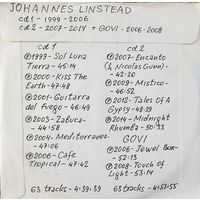 JOHANNES LINSTEAD
cd 1 - 1999 - 2006
cd 2 - 2007 - 2014 + GOVI - 2006-2008
cd 1
1999 - Sol Luna
Tierra - 45:19
2000 - Kiss The
Earth - 47:48
2001 - Guitarra
del fuego - 46:49
2003 - Zabuca -
- 44:58
2004 - Mediterranea -
47:06
2006 - Cafe
Tropical - 47:42
cd 2
2007 - Encanto
(& Nicolas Gunn) -
- 42:20
2009 - Mistico -
- 46:52
2012 - Tales Of A
Gypsy - 48:39
2014 - Midnight
Rhumba - 50:33
GOVI
2006 - Jewel Box -
- 52:13
2008 - Touch of
Light - 53:14
63 tracks - 4:39:39
68 tracks - 4:53:55